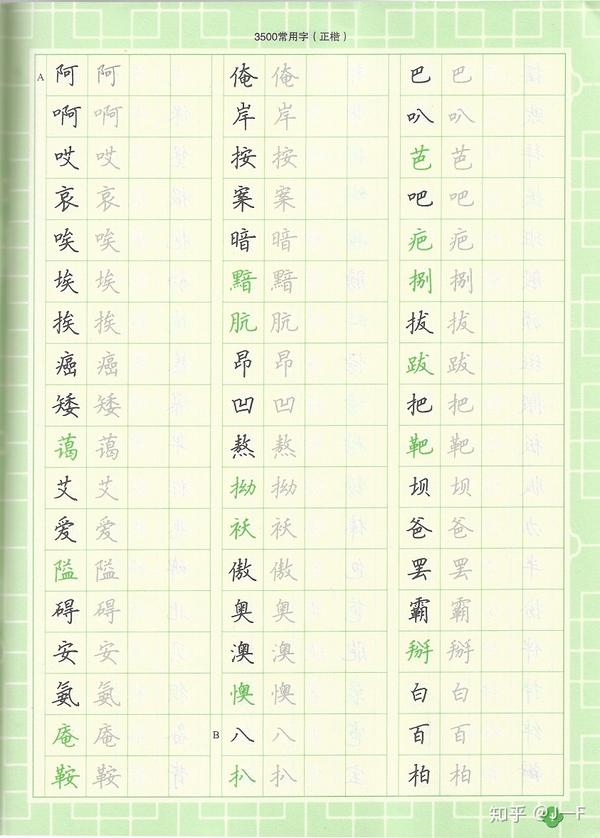 3500常用字（正楷）
A 阿 阿
啊 啊
哎 哎
哀 哀
唉 唉
埃 埃
挨 挨
癌 癌
矮 矮
蔼 蔼
艾 艾
爱 爱
隘 隘
碍 碍
安 安
氨 氨
庵 庵
鞍 鞍
俺 俺
岸 岸
按 按
案 案
暗 暗
黯 黯
肮 肮
昂 昂
凹 凹
熬 熬
拗 拗
袄 袄
傲 傲
奥 奥
澳 澳
懊 懊
B 八 八
扒 扒
巴 巴
叭 叭
芭 芭
吧 吧
疤 疤
捌 捌
拔 拔
跋 跋
把 把
靶 靶
坝 坝
爸 爸
罢 罢
霸 霸
掰 掰
白 白
百 百
柏 柏
知乎 @J—F